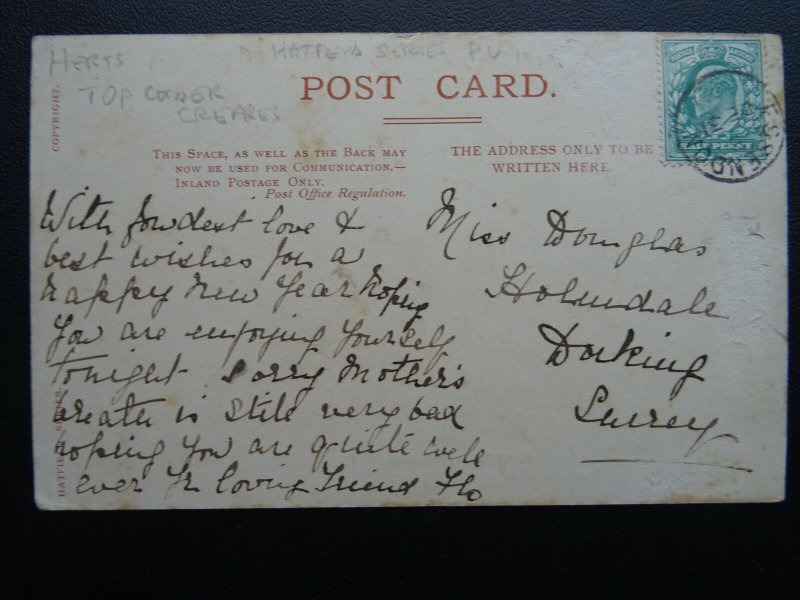 HERTS
HATFIELD SERIES PU
TOP CORNER
CREASES
COPYRIGHT.
POST CARD.
THIS SPACE, AS WELL AS THE BACK MAY
NOW BE USED FOR COMMUNICATION.—
INLAND POSTAGE ONLY.
Post Office Regulation.
THE ADDRESS ONLY TO BE
WRITTEN HERE.
ESSENDON
With fondest love &
best wishes for a
happy New Year hoping
you are enjoying yourself
tonight sorry Mother's
breath is still very bad
hoping you are quite well
ever yr loving friend Flo
Miss Douglas
Holmdale
Dorking
Surrey